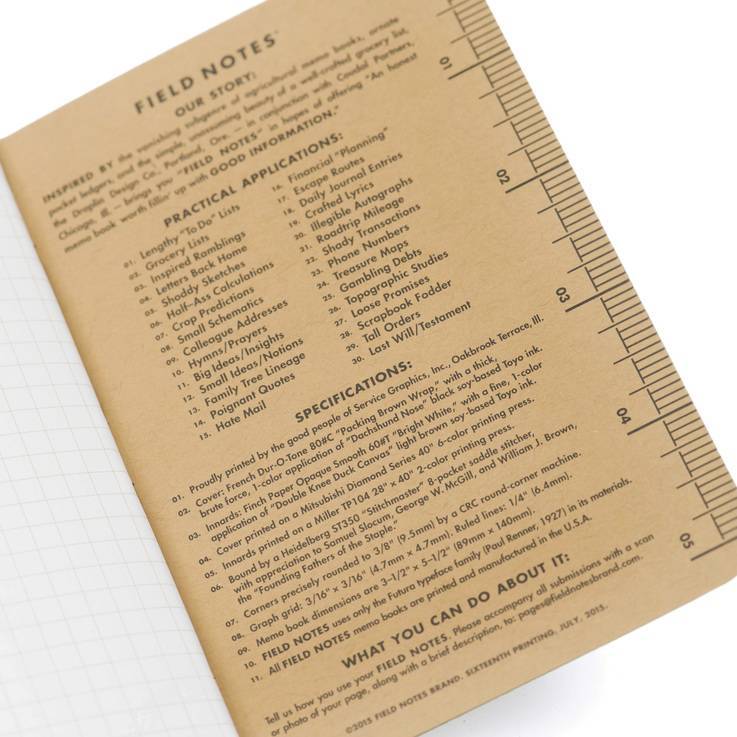 FIELD NOTES
OUR STORY:
INSPIRED BY the vanishing subgenre of agricultural memo books, ornate
pocket ledgers, and the simple, unassuming beauty of a well-crafted grocery list,
the Draplin Design Co., Portland, Ore. – in conjunction with Coudal Partners,
Chicago, Ill. – brings you "FIELD NOTES" in hopes of offering "An honest
memo book worth fillin' up with GOOD INFORMATION."
PRACTICAL APPLICATIONS:
01. Lengthy "To Do" Lists
02. Grocery Lists
03. Inspired Ramblings
04. Letters Back Home
05. Shoddy Sketches
06. Half-Ass Calculations
07. Crop Predictions
08. Small Schematics
09. Colleague Addresses
10. Hymns/Prayers
11. Big Ideas/Insights
12. Small Ideas/Notions
13. Family Tree Lineage
14. Poignant Quotes
15. Hate Mail
16. Financial "Planning"
17. Escape Routes
18. Daily Journal Entries
19. Crafted Lyrics
20. Illegible Autographs
21. Roadtrip Mileage
22. Shady Transactions
23. Phone Numbers
24. Treasure Maps
25. Gambling Debts
26. Topographic Studies
27. Loose Promises
28. Scrapbook Fodder
29. Tall Orders
30. Last Will/Testament
SPECIFICATIONS:
01. Proudly printed by the good people of Service Graphics, Inc., Oakbrook Terrace, Ill.
02. Cover: French Dur-O-Tone 80#C "Packing Brown Wrap," with a thick,
brute force, 1-color application of "Dachshund Nose" black soy-based Toyo ink.
03. Innards: Finch Paper Opaque Smooth 60#T "Bright White," with a fine, 1-color
application of "Double Knee Duck Canvas" light brown soy-based Toyo ink.
04. Cover printed on a Mitsubishi Diamond Series 40" 6-color printing press.
05. Innards printed on a Miller TP104 28" x 40" 2-color printing press.
06. Bound by a Heidelberg ST350 "Stitchmaster" 8-pocket saddle stitcher,
with appreciation to Samuel Slocum, George W. McGill, and William J. Brown,
the "Founding Fathers of the Staple."
07. Corners precisely rounded to 3/8" (9.5mm) by a CRC round-corner machine.
08. Graph grid: 3/16" x 3/16" (4.7mm x 4.7mm). Ruled lines: 1/4" (6.4mm).
09. Memo book dimensions are 3-1/2" x 5-1/2" (89mm x 140mm).
10. FIELD NOTES uses only the Futura typeface family (Paul Renner, 1927) in its materials.
11. All FIELD NOTES memo books are printed and manufactured in the U.S.A.
WHAT YOU CAN DO ABOUT IT:
Tell us how you use your FIELD NOTES. Please accompany all submissions with a scan
or photo of your page, along with a brief description, to: pages@fieldnotesbrand.com.
©2015 FIELD NOTES BRAND. SIXTEENTH PRINTING, JULY, 2015.
01
02
03
04
05